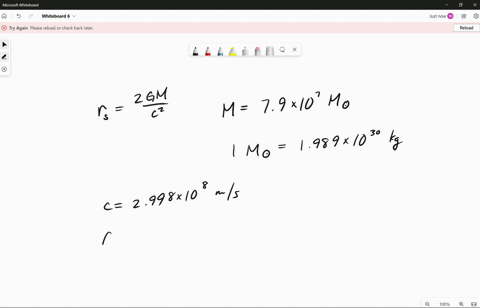 Microsoft Whiteboard
Whiteboard 6
Just now
Try Again Please reload or check back later.
Reload
r_s = 2GM/c²
M = 7.9×10⁷ M⊙
1 M⊙ = 1.989×10³⁰ kg
c = 2.998×10⁸ m/s
100%